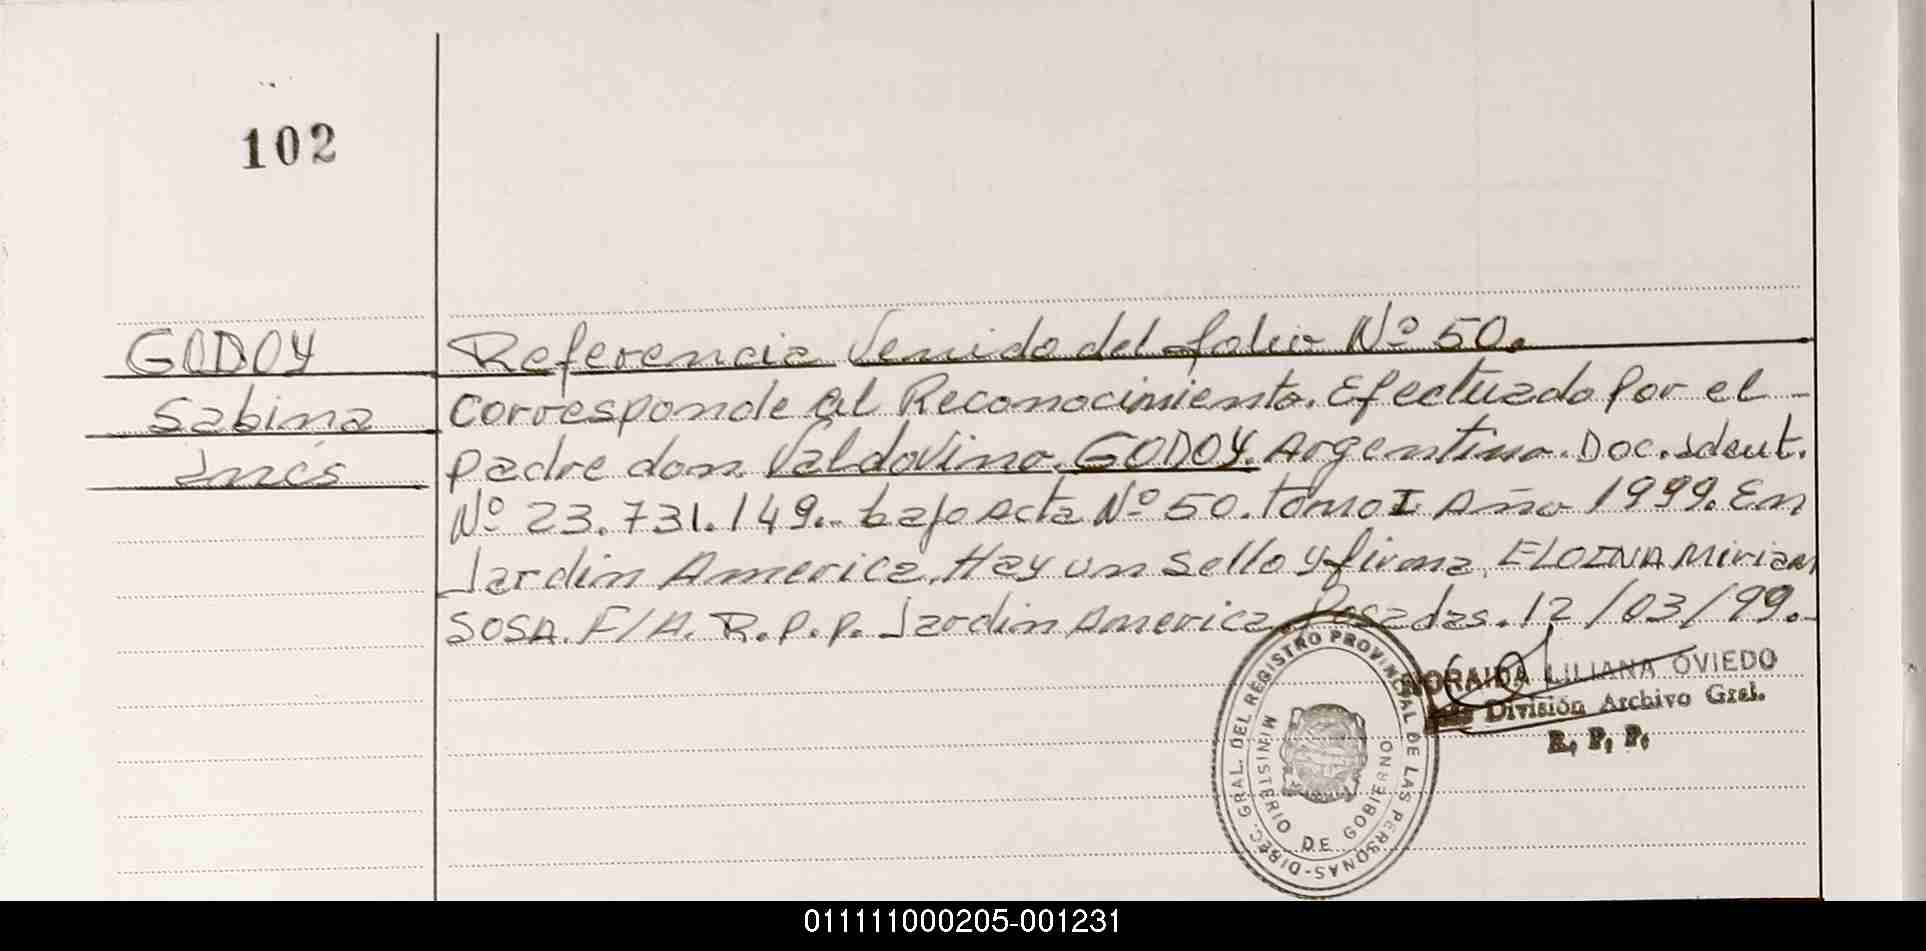 102
GODOY
Sabina
Inés
Referencia Venido del folio Nº 50.
Corresponde al Reconocimiento. Efectuado por el -
padre don. Valdovino. GODOY. Argentino. Doc. Ident.
Nº 23.731.149.- bajo Acta Nº 50. tomo I Año 1999. En
Jardin America. Hay un sello y firma. ELOINA Miriam
SOSA. F/A. R.P.P. Jardin America. Posadas. 12/03/99.-
NORAIDA LILIANA OVIEDO
División Archivo Gral.
R. P. P.
DIREC. GRAL. DEL REGISTRO PROVINCIAL DE LAS PERSONAS-
MINISTERIO DE GOBIERNO
011111000205-001231